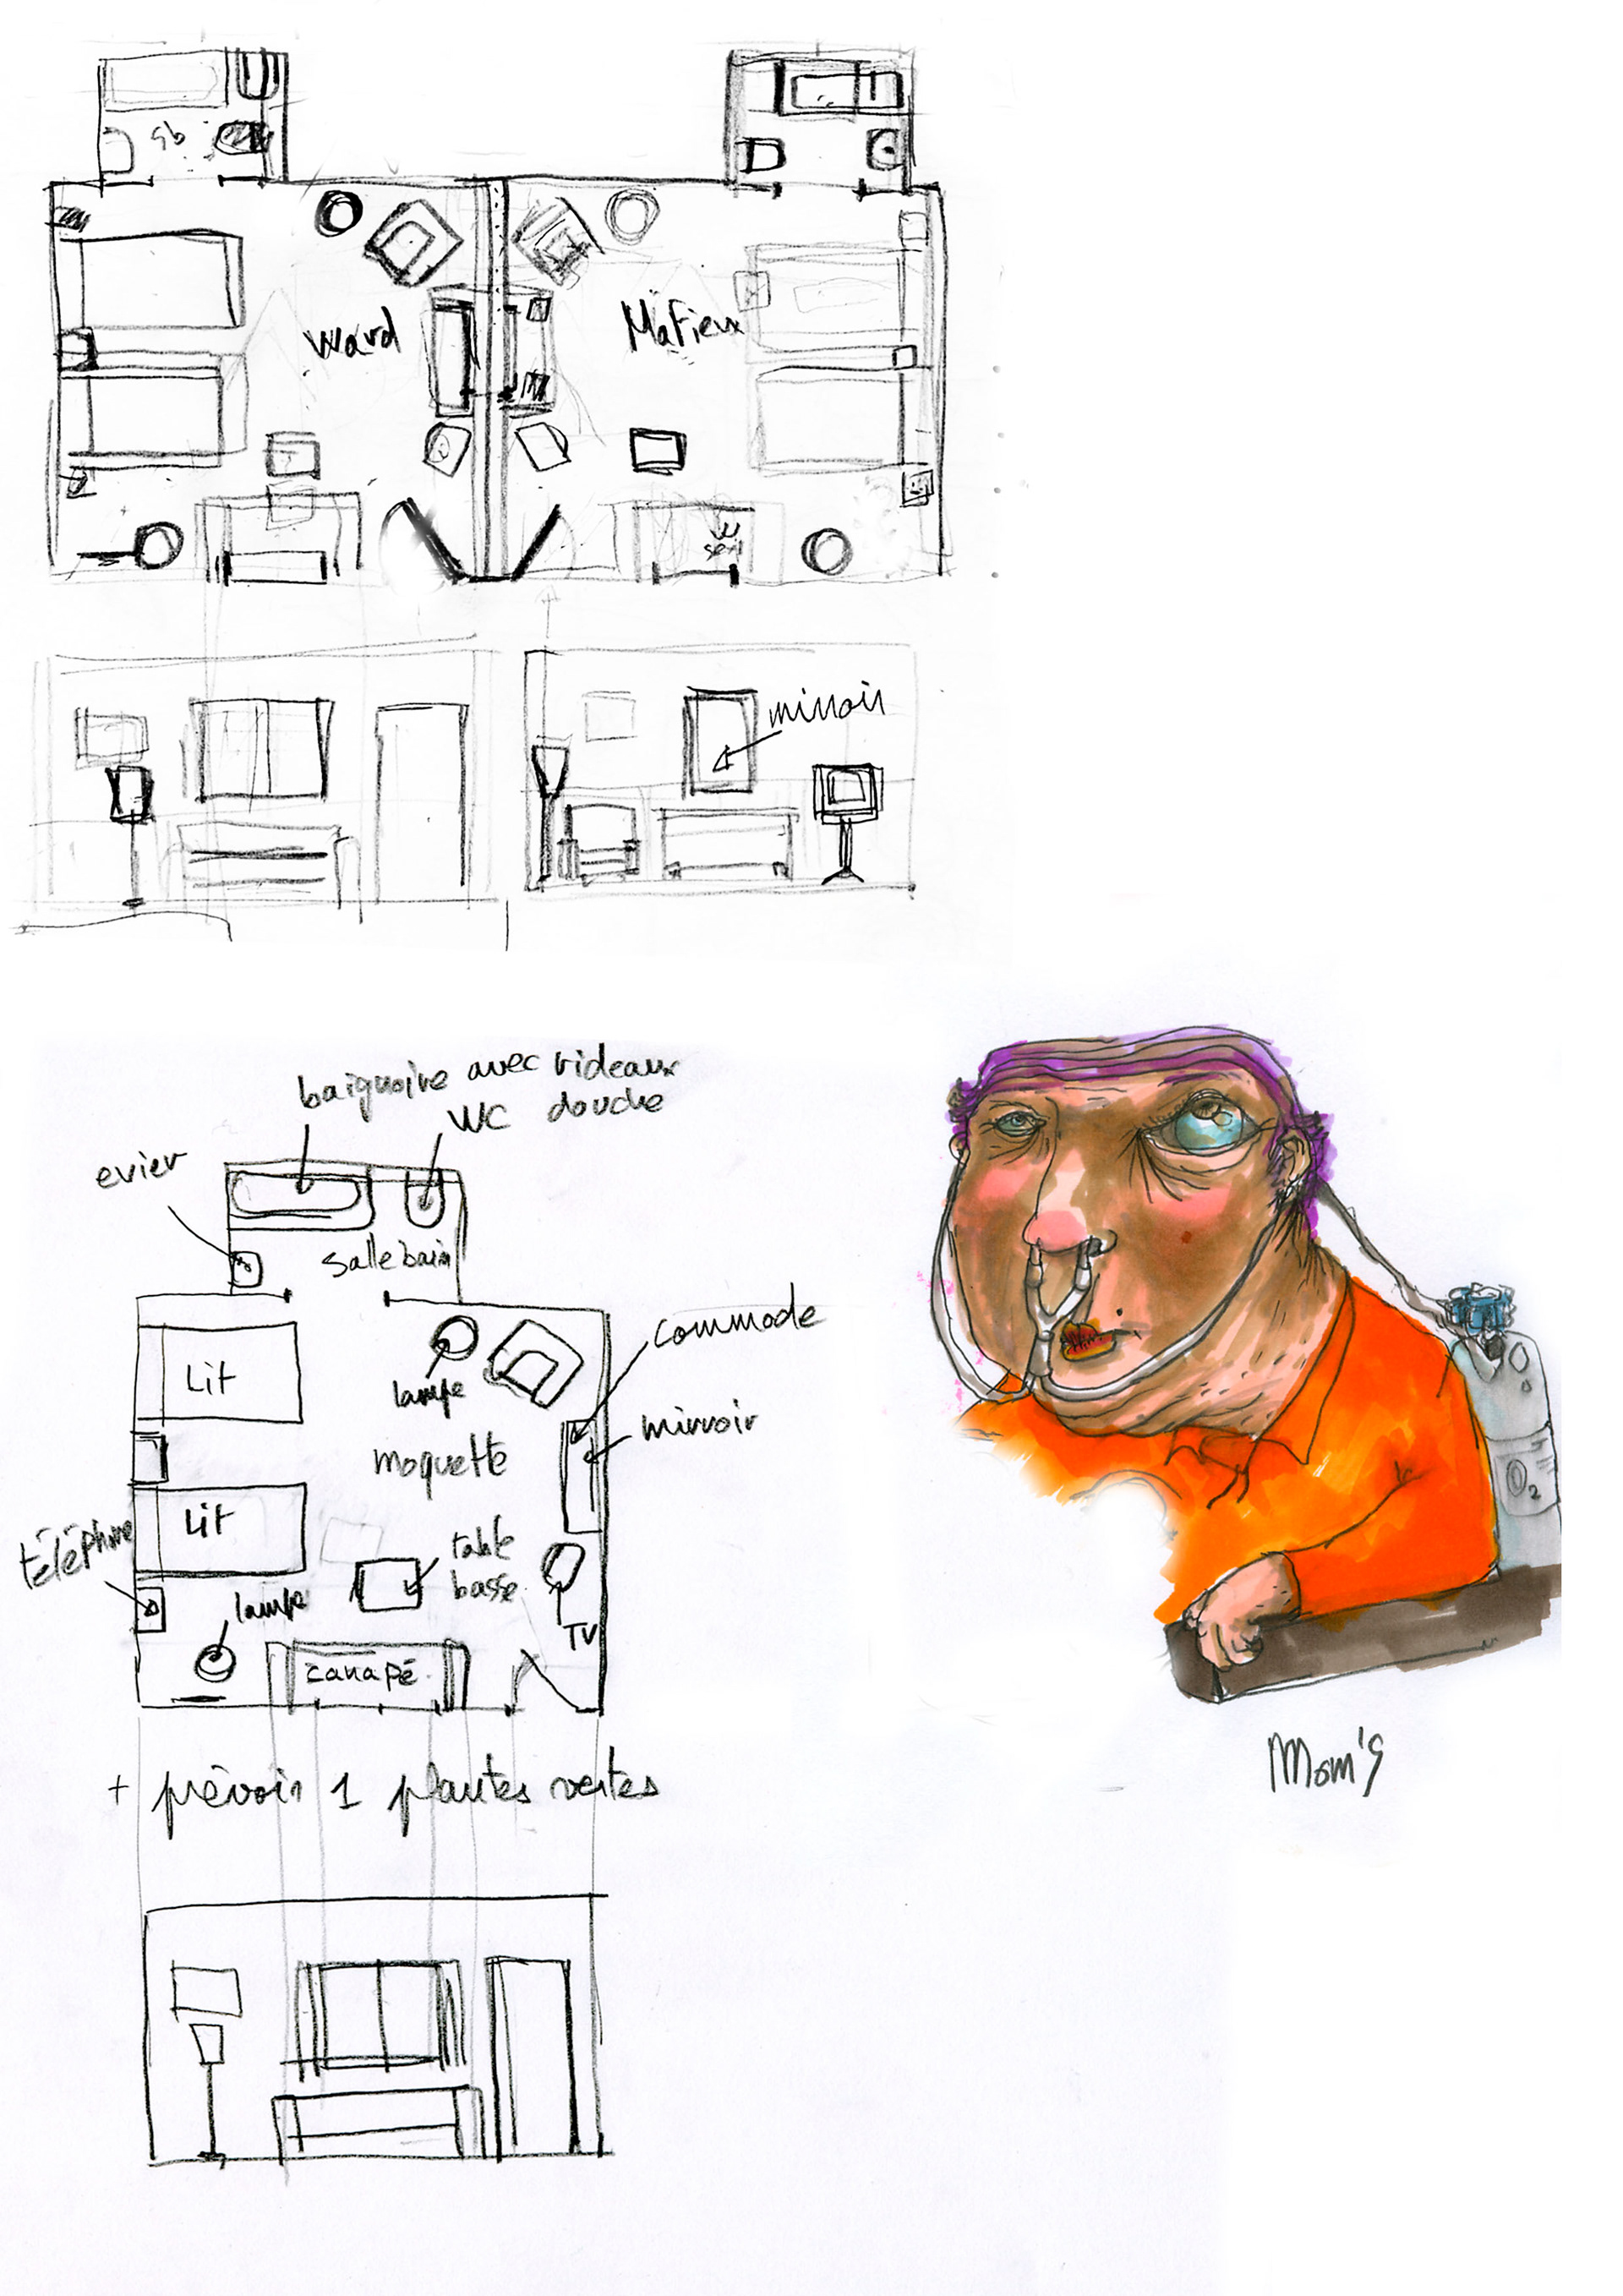 sb
Ward
Mafieux
mirroir
baignoire avec rideaux
WC douche
evier
salle bain
commode
Lit
lampe
mirroir
moquette
Lit
téléphone
table
basse
lampe
TV
canapé
+ prévoir 1 plantes vertes
O2
Mom's